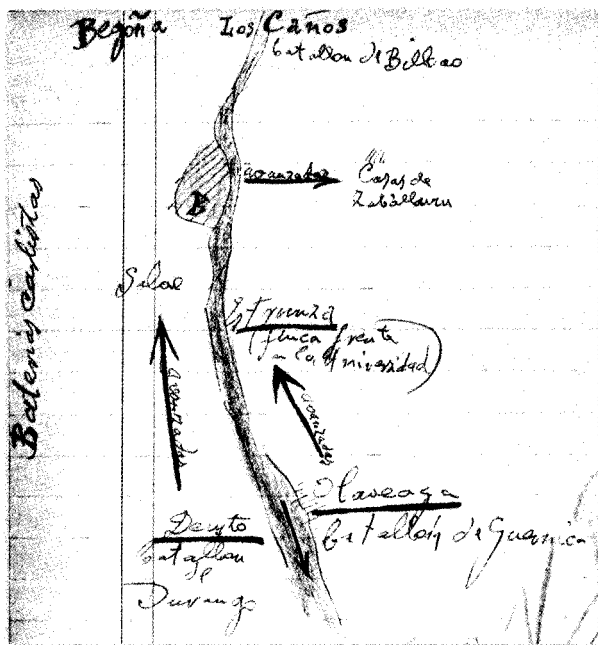 Begoña
Los Caños
batallon de Bilbao
avanzadas
Casas de
Zaballauru
B
Baterias carlistas
Frunza
(finca frente
a la Universidad)
avanzadas
avanzadas
Olaveaga
batallón de Guernica
Deusto
batallon
Durango